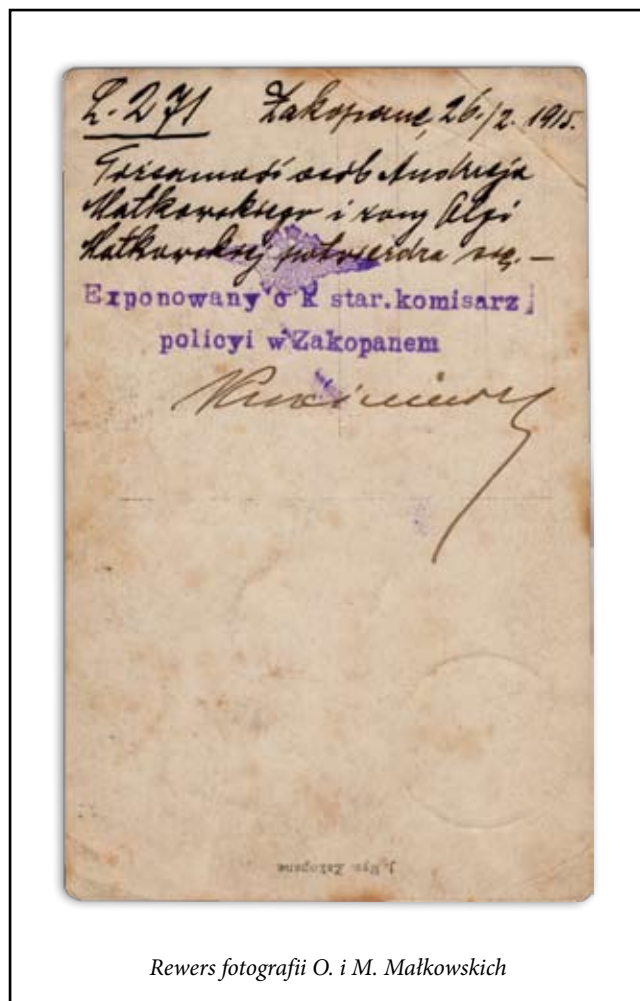 L. 271 Zakopane, 26./2. 1915.
Tożsamość osób Andrzeja
Małkowskiego i żony Olgi
Małkowskiej potwierdza się. —
Exponowany c k star. komisarz
policyi w Zakopanem
Zakopane
Rewers fotografii O. i M. Małkowskich